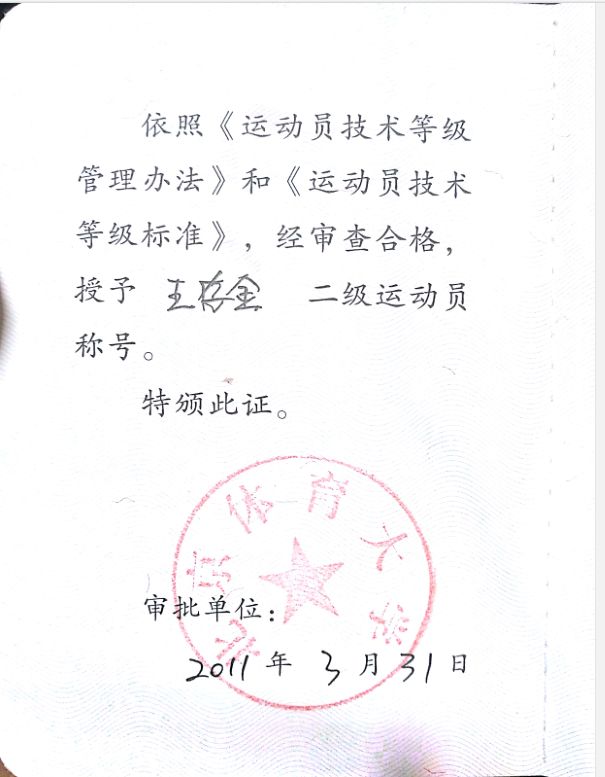 依照《运动员技术等级
管理办法》和《运动员技术
等级标准》，经审查合格，
授予 王存金 二级运动员
称号。
特颁此证。
北京体育大学
审批单位：
2011年3月31日